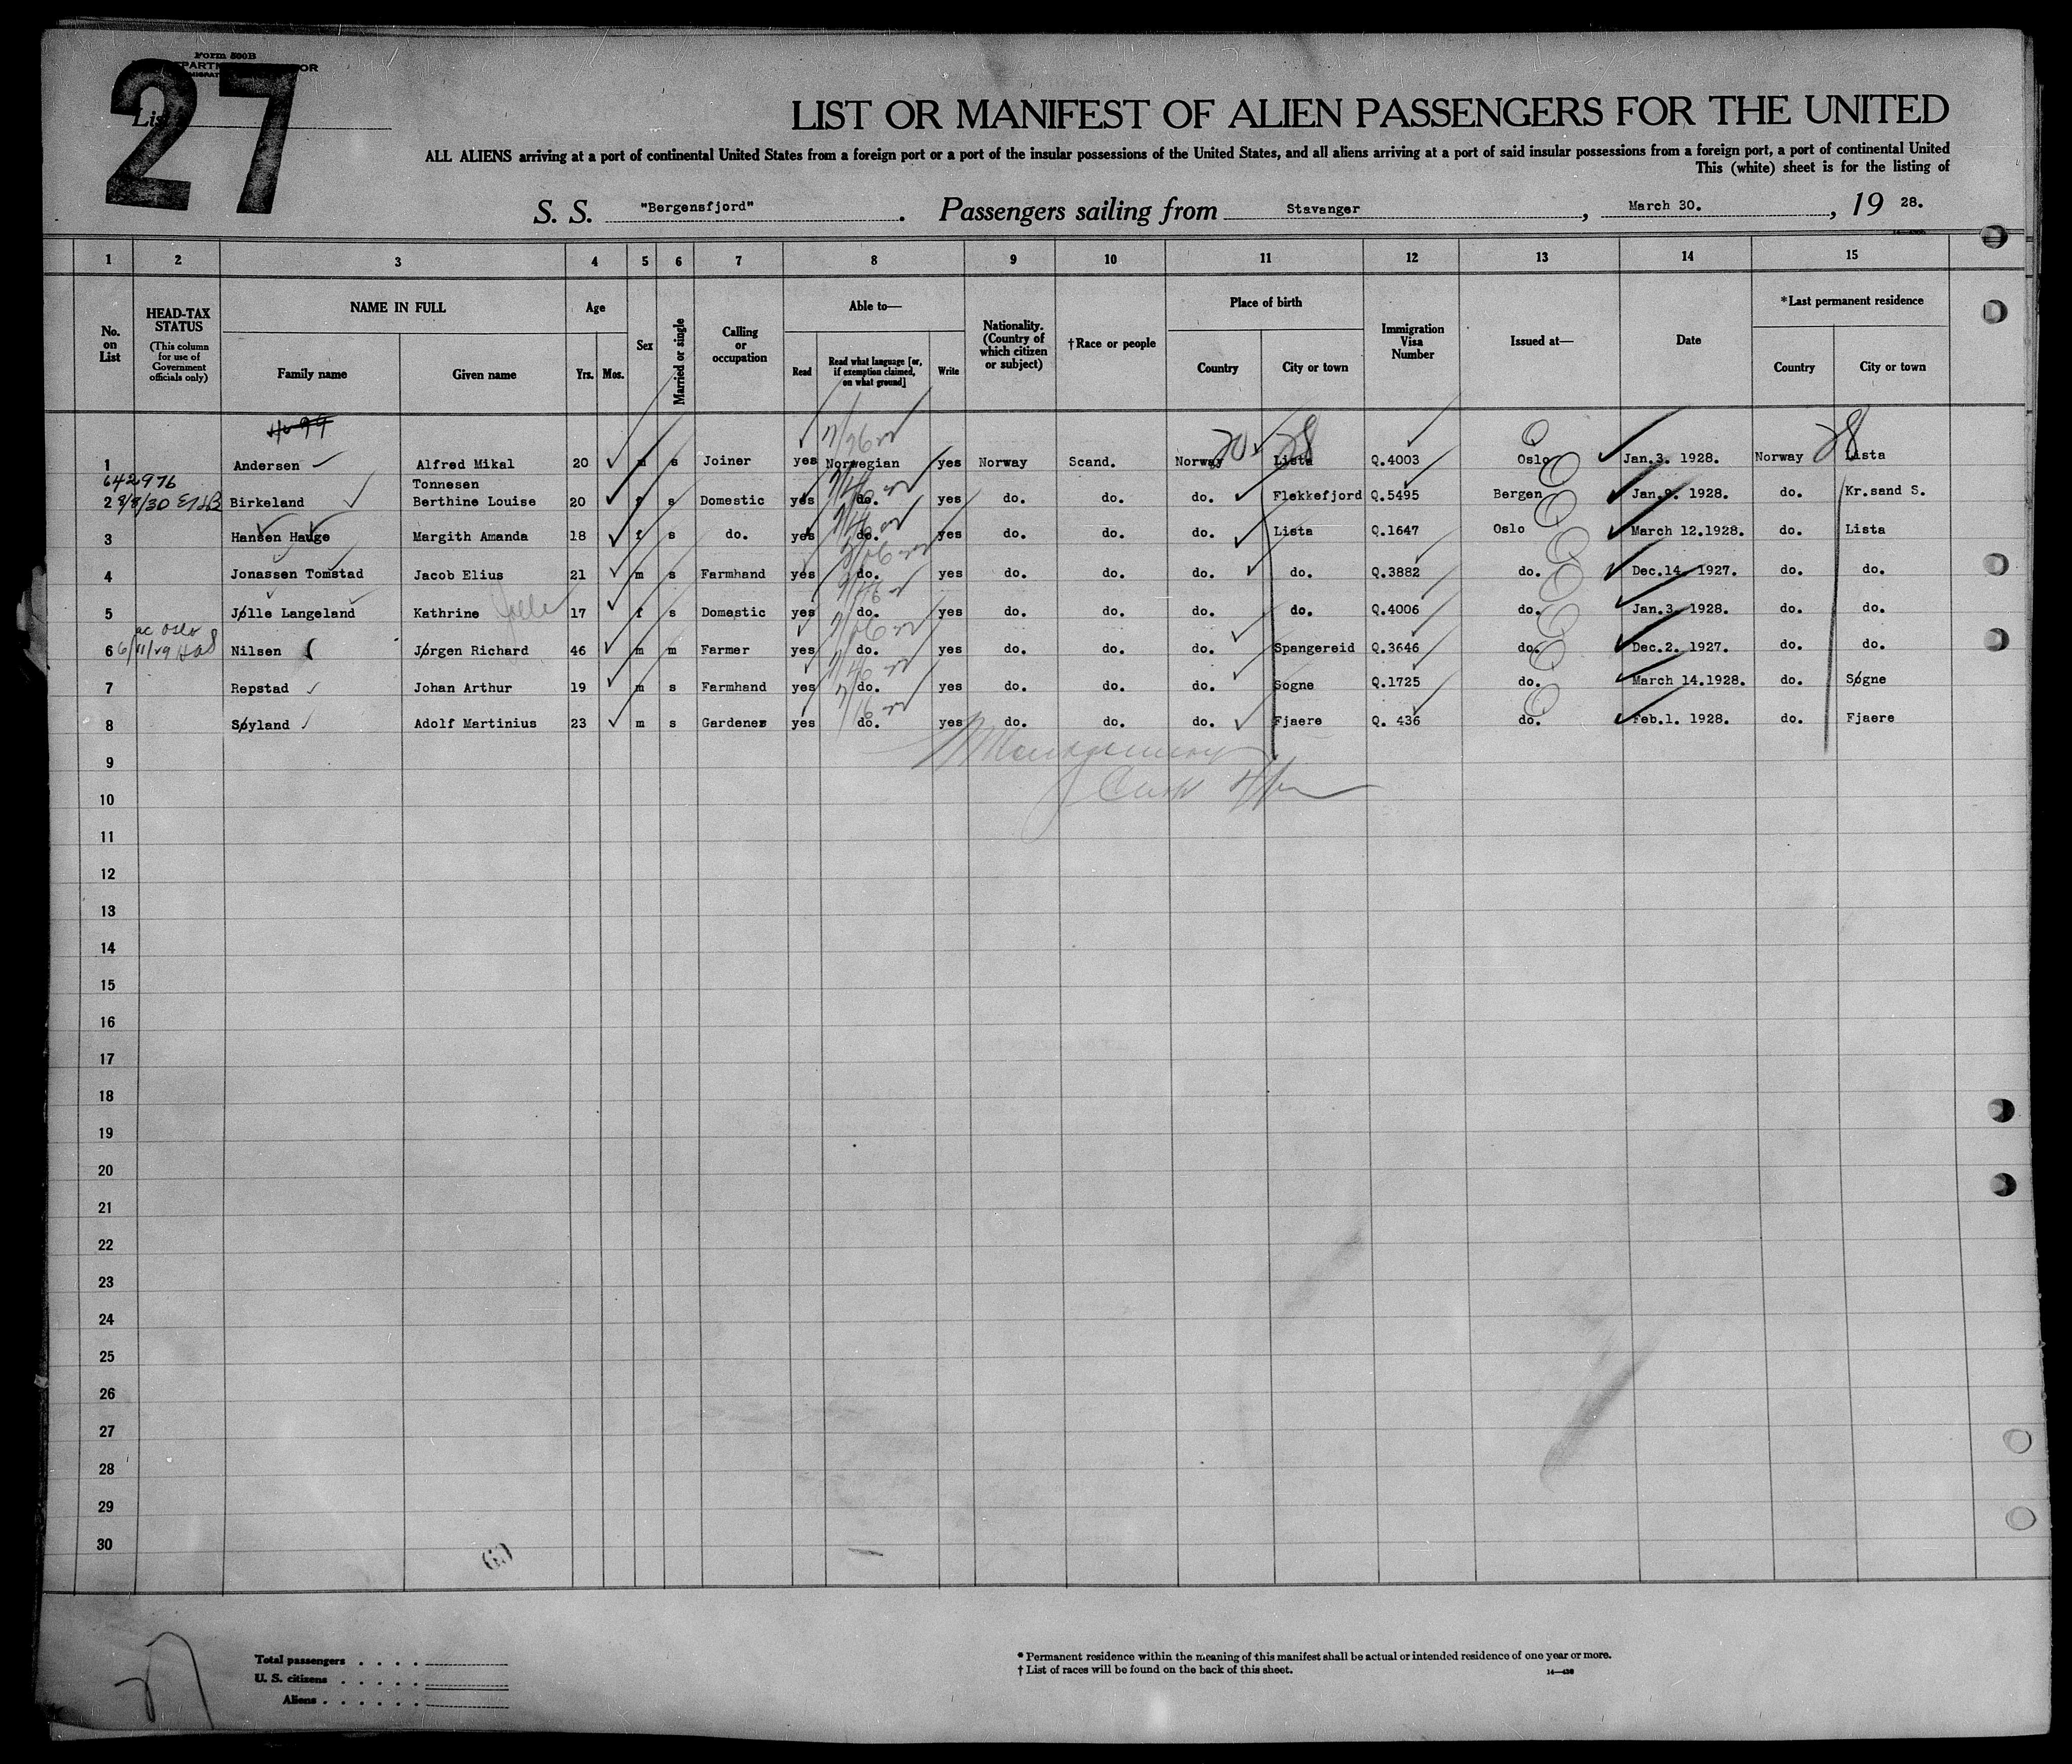 Form 500B
27
List
LIST OR MANIFEST OF ALIEN PASSENGERS FOR THE UNITED
ALL ALIENS arriving at a port of continental United States from a foreign port or a port of the insular possessions of the United States, and all aliens arriving at a port of said insular possessions from a foreign port, a port of continental United
This (white) sheet is for the listing of
S. S. "Bergensfjord". Passengers sailing from Stavanger, March 30., 19 28.
1 2 3 4 5 6 7 8 9 10 11 12 13 14 15
No. on List
HEAD-TAX STATUS (This column for use of Government officials only)
NAME IN FULL
Family name Given name
Age
Yrs. Mos.
Sex
Married or single
Calling or occupation
Able to—
Read Read what language [or, if exemption claimed, on what ground] Write
Nationality. (Country of which citizen or subject)
†Race or people
Place of birth
Country City or town
Immigration Visa Number
Issued at—
Date
*Last permanent residence
Country City or town
20 28 28
1 Andersen Alfred Mikal 20 m s Joiner yes Norwegian yes Norway Scand. Norway Lista Q.4003 Oslo Jan.3. 1928. Norway Lista
642976 Tonnesen
2 Birkeland Berthine Louise 20 f s Domestic yes do. yes do. do. do. Flekkefjord Q.5495 Bergen Jan.9. 1928. do. Kr.sand S.
3 Hansen Hauge Margith Amanda 18 f s do. yes do. yes do. do. do. Lista Q.1647 Oslo March 12.1928. do. Lista
4 Jonassen Tomstad Jacob Elius 21 m s Farmhand yes do. yes do. do. do. do. Q.3882 do. Dec.14. 1927. do. do.
5 Jølle Langeland Kathrine Jolle 17 f s Domestic yes do. yes do. do. do. do. Q.4006 do. Jan.3. 1928. do. do.
6 Nilsen Jørgen Richard 46 m m Farmer yes do. yes do. do. do. Spangereid Q.3646 do. Dec.2. 1927. do. do.
7 Repstad Johan Arthur 19 m s Farmhand yes do. yes do. do. do. Søgne Q.1725 do. March 14.1928. do. Søgne
8 Søyland Adolf Martinius 23 m s Gardener yes do. yes do. do. do. Fjaere Q. 436 do. Feb.1. 1928. do. Fjaere
9
10
11
12
13
14
15
16
17
18
19
20
21
22
23
24
25
26
27
28
29
30
Total passengers
U. S. citizens
Aliens
* Permanent residence within the meaning of this manifest shall be actual or intended residence of one year or more.
† List of races will be found on the back of this sheet.
27